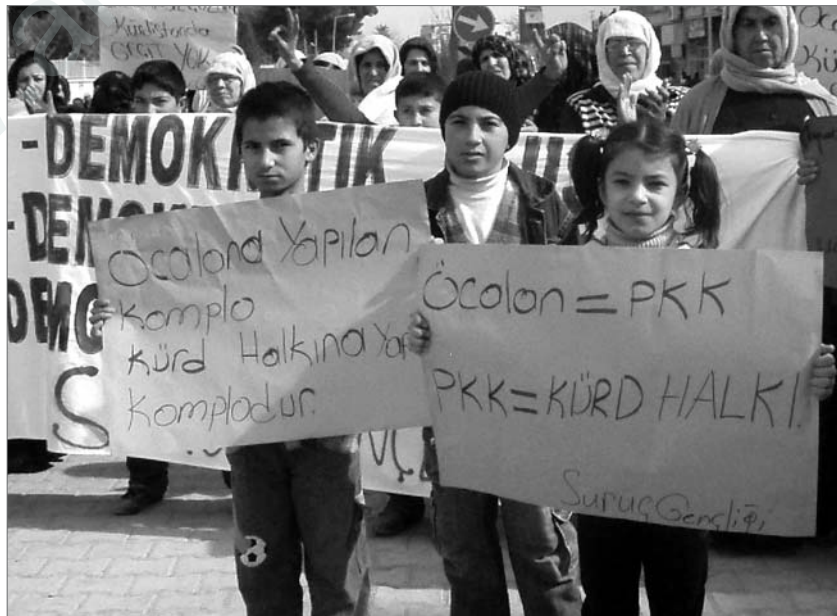 Kürdistanda
GEÇİT YOK
-DEMOKRATIK
-DEM
DEMO
S
Öcalana Yapılan
Komplo
Kürd Halkına Yap
Komplodur.
Öcalan = PKK
PKK = KÜRD HALKI.
Suruç Gençliği